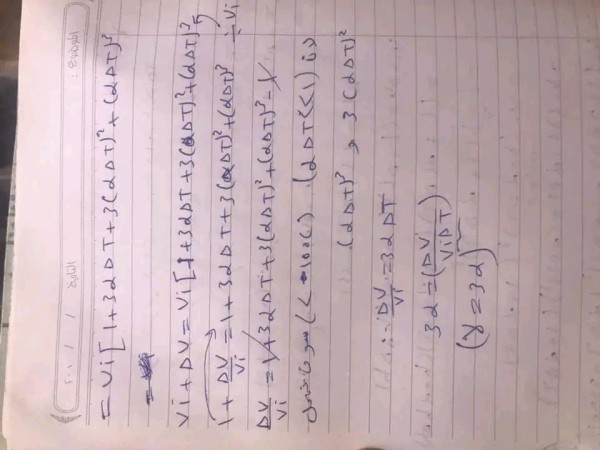 = Vi [ 1+3αΔT+3(αΔT)²+(αΔT)³
=
Vi+ΔV = Vi [ 1+3αΔT+3(αΔT)²+(αΔT)³] ÷ Vi
1+ ΔV/Vi = 1+3αΔT+3(αΔT)²+(αΔT)³
ΔV/Vi = 1+3αΔT+3(αΔT)²+(αΔT)³-1
(αΔT<<1)
(αΔT)³ , 3(αΔT)²
∴ ΔV/Vi = 3αΔT
3α = (ΔV/ViΔT)
(γ = 3α)